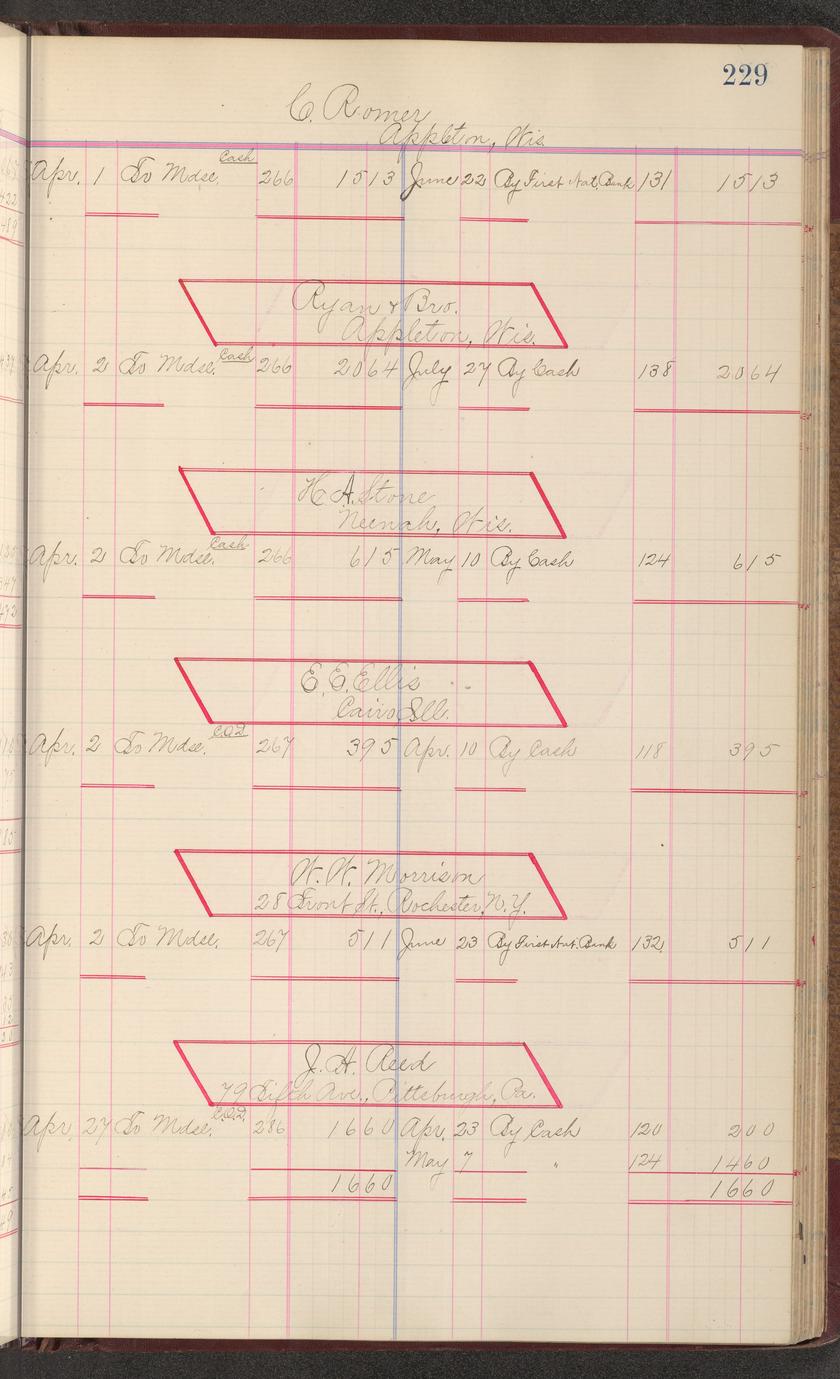 229
C. Romer
Appleton, Wis.
Apr. 1 To Mdse. Cash 266 1513 June 22 By First Nat. Bank 131 1513
Ryan & Bro.
Appleton, Wis.
Apr. 2 To Mdse. Cash 266 2064 July 27 By Cash 138 2064
H. A. Stone
Neenah, Wis.
Apr. 2 To Mdse. Cash 266 615 May 10 By Cash 124 615
E. E. Ellis
Cairo Ill.
Apr. 2 To Mdse. C.O.D. 267 395 Apr. 10 By Cash 118 395
W. W. Morrison
28 Front St., Rochester, N.Y.
Apr. 2 To Mdse. 267 511 June 23 By First Nat. Bank 132 511
J. A. Reed
79 Fifth Ave., Pittsburgh, Pa.
Apr. 27 To Mdse. C.O.D. 286 1660 Apr. 23 By Cash 120 200
May 7 " 124 1460
1660 1660